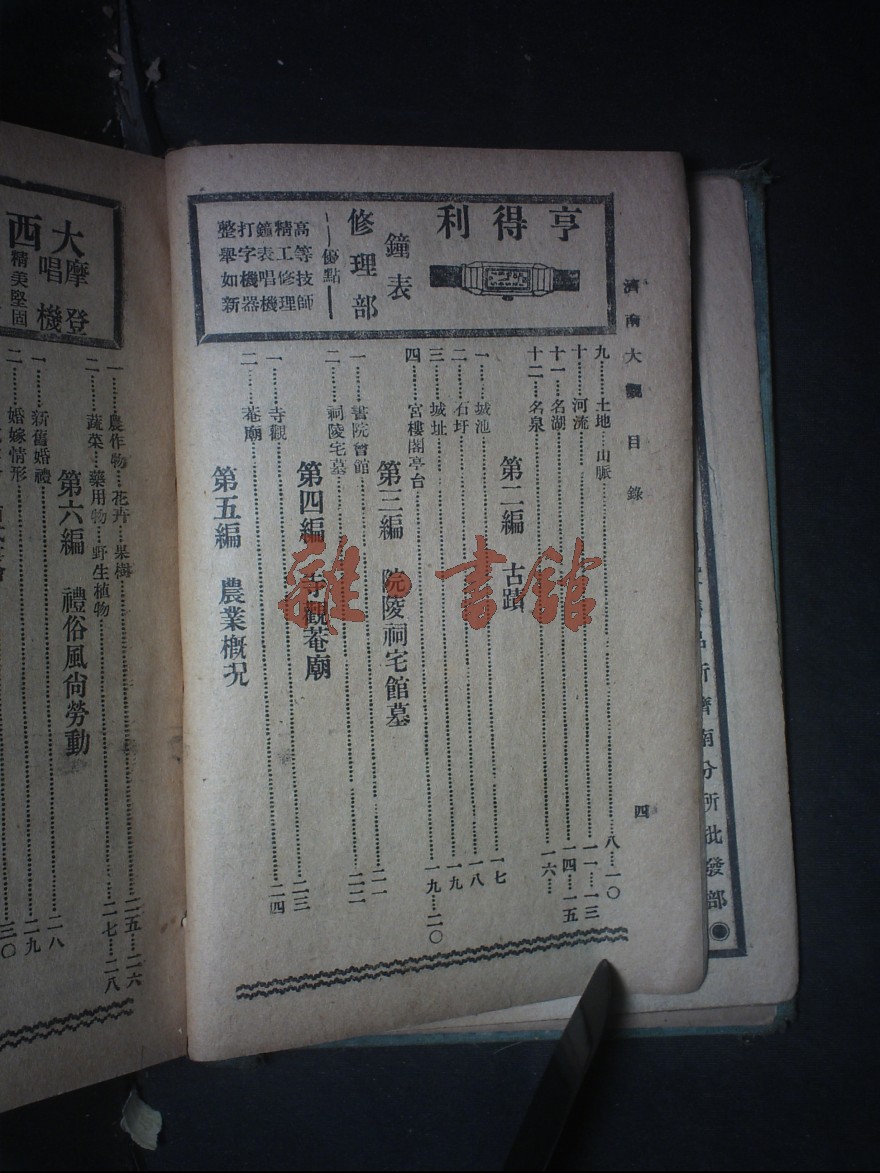 濟南大觀目錄
四
亨得利
鐘表
修理部
優點
高等技師
精工修理
鐘表唱機
打字機器
整舉如新
九……土地…山脈……八…一〇
十……河流……一一…一三
十一……名湖……一四…一五
十二……名泉……一六…
第二編 古蹟
一……城池……一七
二……石圩……一八
三……城址……一九
四……宮樓閣亭台……一九…二〇
第三編 院陵祠宅館墓
一……書院會館……二一
二……祠陵宅墓……二二
第四編 寺觀菴廟
一……寺觀……二三
二……菴廟……二四
第五編 農業概況
一……農作物…花卉…果樹……二五…二六
二……蔬菜…藥用物…野生植物……二七…二八
第六編 禮俗風尙勞動
一……新舊婚禮……二八
二……婚嫁情形……二九
三〇
大
西
摩登
唱機
精美堅固
濟南分所批發部
雜·書館